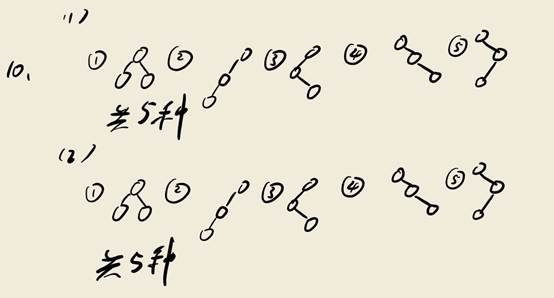 (1)
10. ① ② ③ ④ ⑤
共5种
(2)
① ② ③ ④ ⑤
共5种